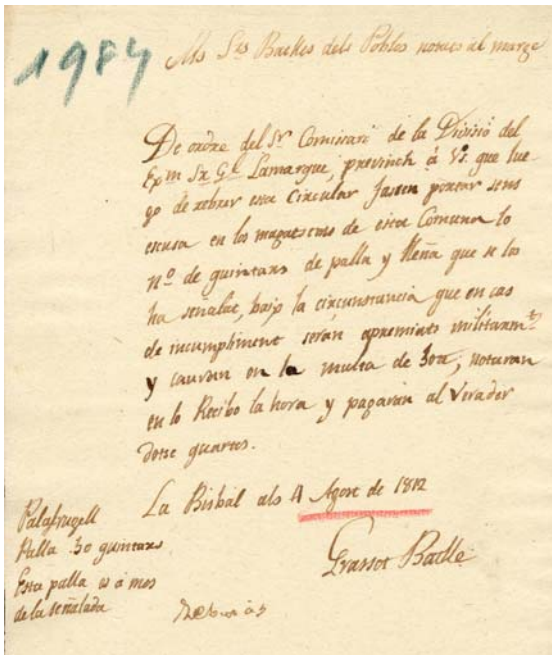 1984
Als Srs Batlles dels Pobles notats al marge
De ordre del Sr Comisari de la Divisió del
Exm Sr Gl Lamarque, previnch á Vs. que lue-
go de rebrer esta Circular fassen portar sens
escusa en los magatsems de esta Comuna lo
nº de quintars de palla y lleña que se los
ha señalat, baix la circunstancia que en cas
de incumpliment serán apremiats militarmt
y caurán en la multa de 30tt, notaran
en lo Recibo la hora y pagarán al Verader
dotse quartos.
La Bisbal als 4 Agost de 1812
Grassot Batlle
Palafrugell
Palla 30 quintars
Esta palla es á mes
de la señalada